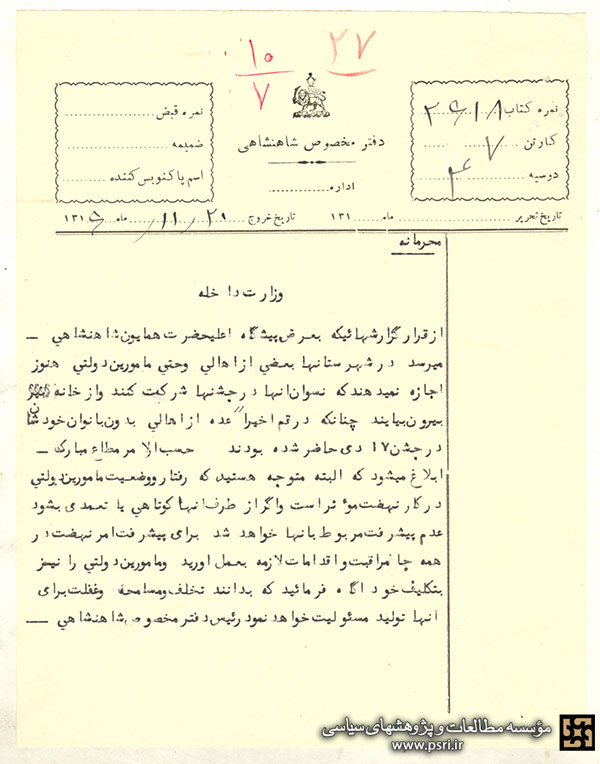 ۱۰
۷
۲۷
نمره کتاب ۲۶۱۸
کارتن ۷
دوسیه
دفتر مخصوص شاهنشاهی
اداره
نمره قبض
ضمیمه
اسم پاکنویس کننده
تاریخ تحریر ماه ۱۳۱ تاریخ خروج ۲۰ ۱۱ ماه ۱۳۱۶
محرمانه
وزارت داخله
از قرار گزارشهائیکه بعرض پیشگاه اعلیحضرت همایون شاهنشاهي ــ
میرسد در شهرستانها بعضي از اهالي وحتي مامورین دولتي هنوز
اجازه نمیدهند که نسوان انها در جشنها شرکت کنند و از خانه
بیرون بیایند چنانکه در قم اخیرا" عده از اهالي بدون بانوان خودشان
در جشن ۱۷ دی حاضر شده بودند حسب الامر مطاع مبارک ــ
ابلاغ میشود که البته متوجه هستید که رفتار ووضعیت مامورین دولتي
در کار نهضت موٴثر است واگر از طرف انها کوتاهي یا تعمدی بشود
عدم پیشرفت مربوط بانها خواهد شد برای پیشرفت امر نهضت در
همه جا مراقبت و اقدامات لازمه بعمل اورید ومامورین دولتي را نیز
بتکلیف خود اگاه فرمائید که بدانند تخلف ومسامحه وغفلت برای
انها تولید مسئولیت خواهد نمود رئیس دفتر مخصوص شاهنشاهي ــ
مؤسسه مطالعات و پژوهشهای سیاسی
www.psri.ir